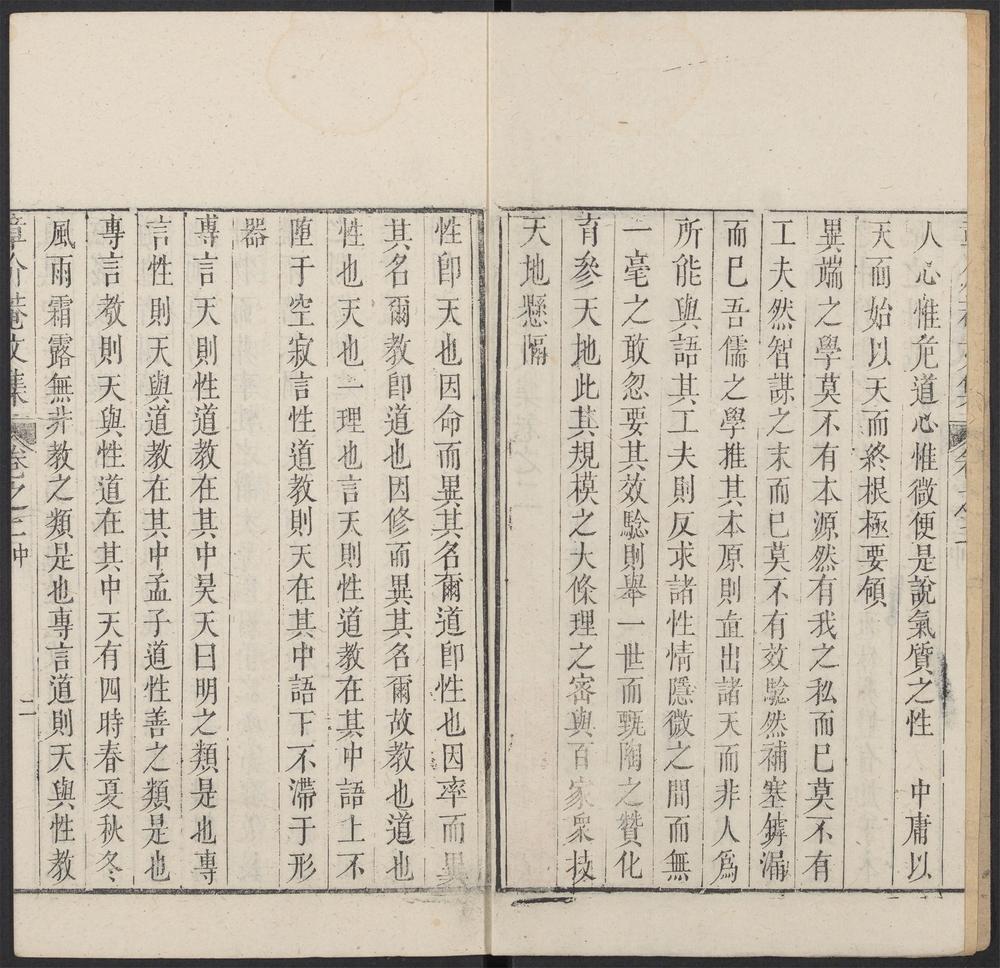 人心惟危道心惟微便是說氣質之性　中庸以
天而始以天而終根極要領
異端之學莫不有本源然有我之私而已莫不有
工夫然智謀之末而已莫不有效騐然補塞罅漏
而已吾儒之學推其本原則直出諸天而非人爲
所能與語其工夫則反求諸性情隱微之間而無
一毫之敢忽要其效騐則舉一世而甄陶之贊化
育參天地此其規模之大條理之密與百家衆技
天地懸隔
性卽天也因命而異其名爾道卽性也因率而異
其名爾教卽道也因修而異其名爾故教也道也
性也天也一理也言天則性道教在其中語上不
墮于空寂言性道教則天在其中語下不滯于形
器
專言天則性道教在其中昊天曰明之類是也專
言性則天與道教在其中孟子道性善之類是也
專言教則天與性道在其中天有四時春夏秋冬
風雨霜露無非教之類是也專言道則天與性教
章介菴文集　卷之二　二